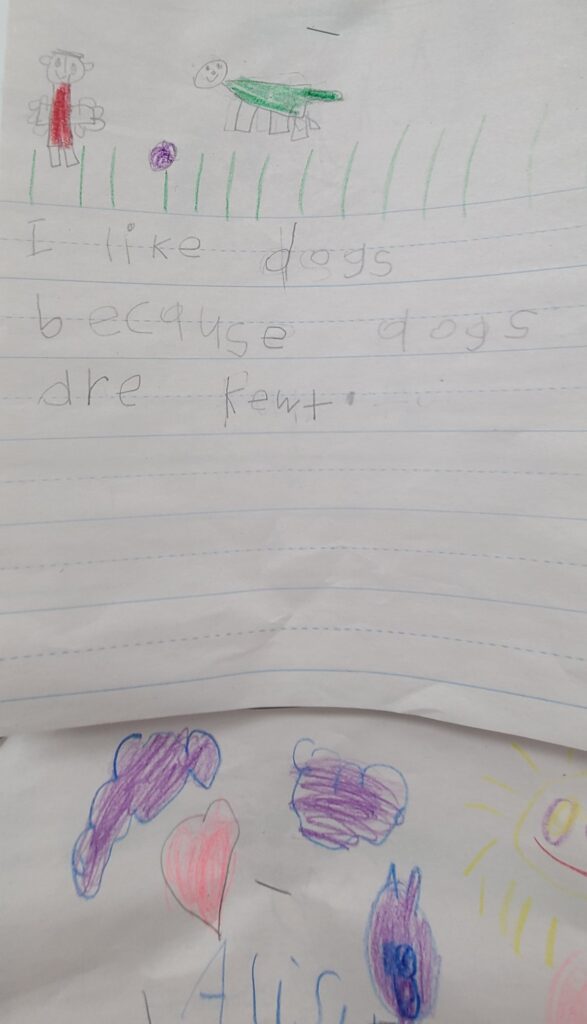 I like dogs
because dogs
are kewt.